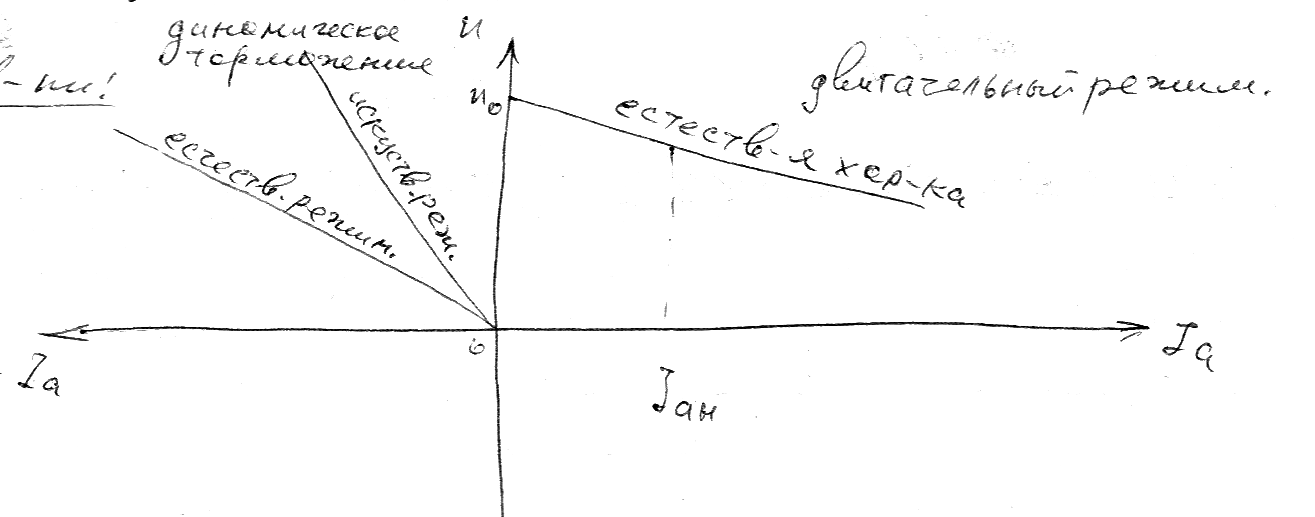 динамическое
торможение
n
-ти!
n₀
двигательный режим.
естеств-я хар-ка
искуств.реж.
естеств.режим.
0
Iа
Iа
Iан